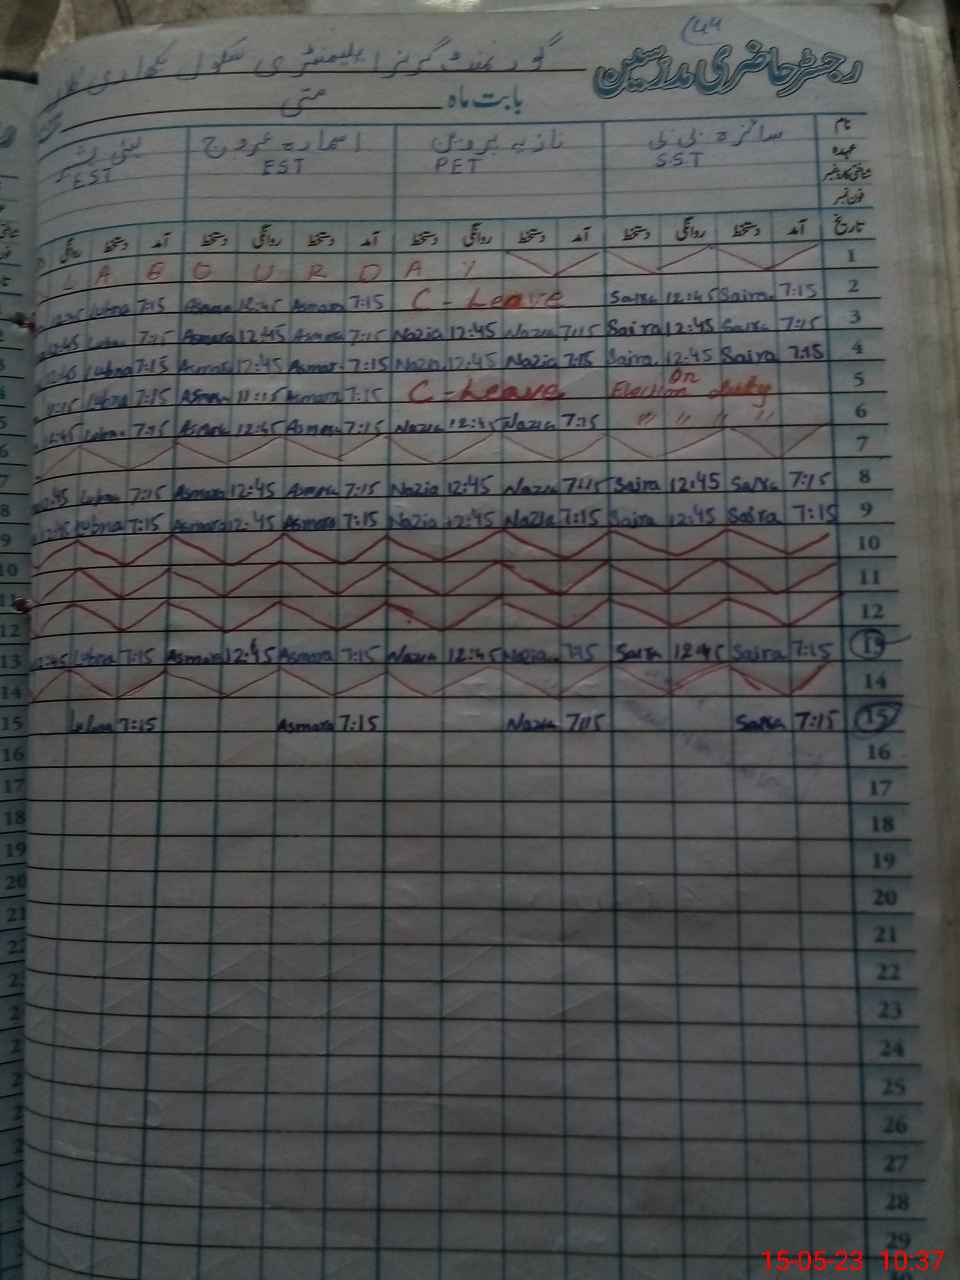 44
رجسٹر حاضری مدرسین
گورنمنٹ گرلز ایلیمنٹری سکول
بابت ماہ مئی
نام سائرہ بی بی نازیہ پروین اسمارہ عروج لبنی
عہدہ SST PET EST EST
شناختی کارڈ نمبر
فون نمبر
تاریخ آمد دستخط روانگی دستخط آمد دستخط روانگی دستخط آمد دستخط روانگی دستخط آمد دستخط روانگی
L A B O U R D A Y 1
Lubna 7:15 Asmara 12:45 Asmara 7:15 C-Leave Saira 12:45 Saira 7:15 2
12:45 Lubna 7:15 Asmara 12:45 Asmara 7:15 Nazia 12:45 Nazia 7:15 Saira 12:45 Saira 7:15 3
12:45 Lubna 7:15 Asmara 12:45 Asmara 7:15 Nazia 12:45 Nazia 7:15 Saira 12:45 Saira 7:15 4
11:15 Lubna 7:15 Asmara 11:15 Asmara 7:15 C-Leave On Election duty 5
12:45 Lubna 7:15 Asmara 12:45 Asmara 7:15 Nazia 12:45 Nazia 7:15 " " " " 6
7
12:45 Lubna 7:15 Asmara 12:45 Asmara 7:15 Nazia 12:45 Nazia 7:15 Saira 12:45 Saira 7:15 8
12:45 Lubna 7:15 Asmara 12:45 Asmara 7:15 Nazia 12:45 Nazia 7:15 Saira 12:45 Saira 7:15 9
10
11
12
12:45 Lubna 7:15 Asmara 12:45 Asmara 7:15 Nazia 12:45 Nazia 7:15 Saira 12:45 Saira 7:15 13
14
Lubna 7:15 Asmara 7:15 Nazia 7:15 Saira 7:15 15
16
17
18
19
20
21
22
23
24
25
26
27
28
29
15-05-23 10:37